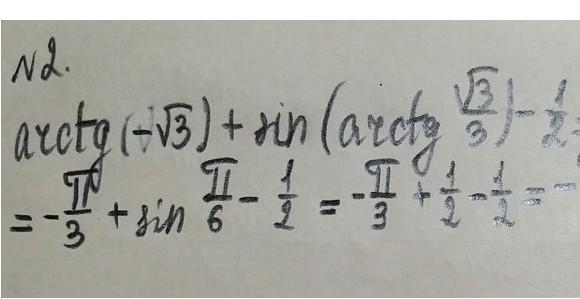 N2.
arctg(-√3) + sin(arctg √3/3) - 1/2 =
= -π/3 + sin π/6 - 1/2 = -π/3 + 1/2 - 1/2 = -